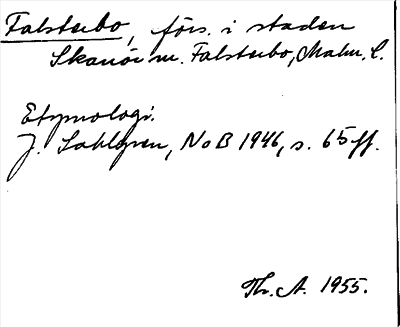 Falsterbo, förs. i staden
Skanör m. Falsterbo, Malm. l.
Etymologi.
J. Sahlgren, NoB 1946, s. 65 ff.
Th. A. 1955.